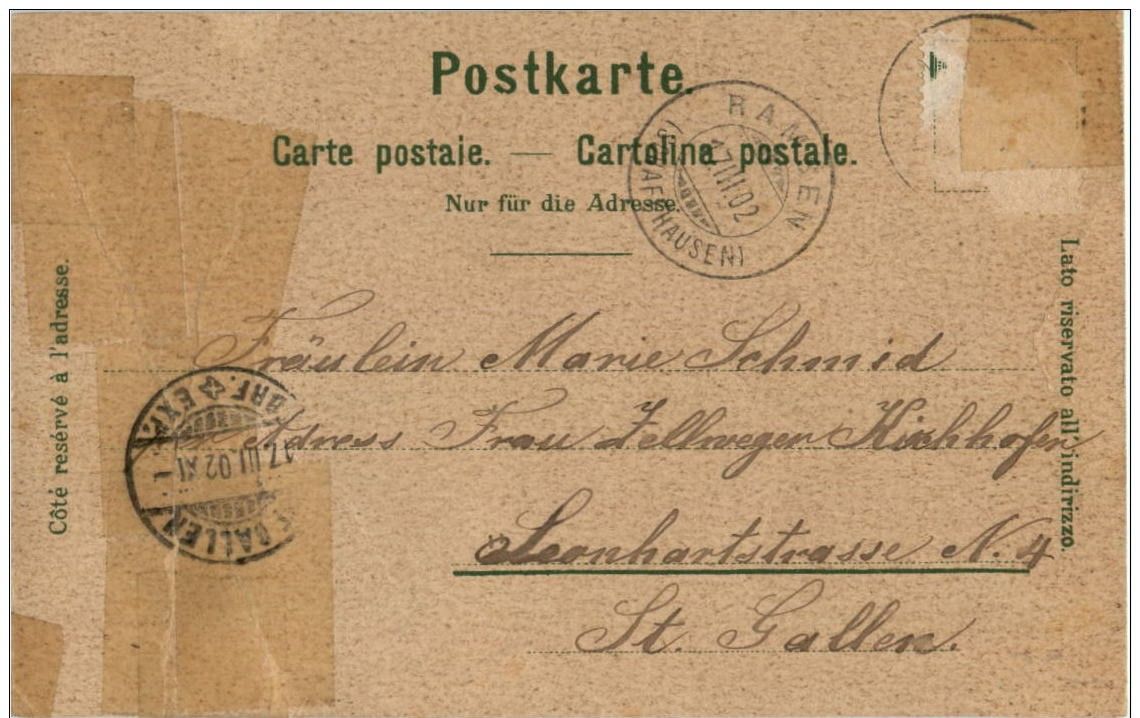 Postkarte.
Carte postale. — Cartolina postale.
Nur für die Adresse.
RAMSEN
17.III.02
(SCHAFFHAUSEN)
Côté resérvé à l'adresse.
Lato riservato all'indirizzo.
Fräulein Marie Schmid
Adress Frau Zellweger Kirchhofer
Leonhartstrasse N. 4
St. Gallen.
BRF. EXP.
17.III.02 XI
ST. GALLEN